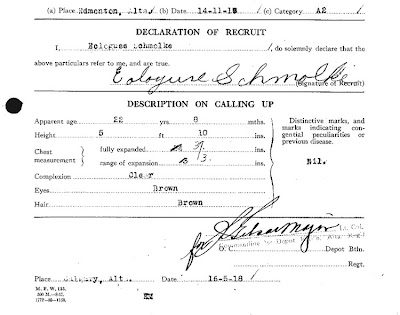 (a) Place Edmonton, Alta. (b) Date 14-11-18 (c) Category A2
DECLARATION OF RECRUIT
I, Eologues Schmolke, do solemnly declare that the
above particulars refer to me, and are true.
Eologure Schmolke
(Signature of Recruit)
DESCRIPTION ON CALLING UP
Apparent age 22 yrs 8 mths.
Height 5 ft 10 ins.
Chest measurement { fully expanded 39 ins.
range of expansion 3 ins.
Complexion Clear
Eyes Brown
Hair Brown
Distinctive marks, and
marks indicating con-
genital peculiarities or
previous disease.
Nil.
for Major
Lt. Col.
O. C. Depot Btln.
Regt.
Place Calgary, Alta. Date 16-5-18
M. F. W. 133.